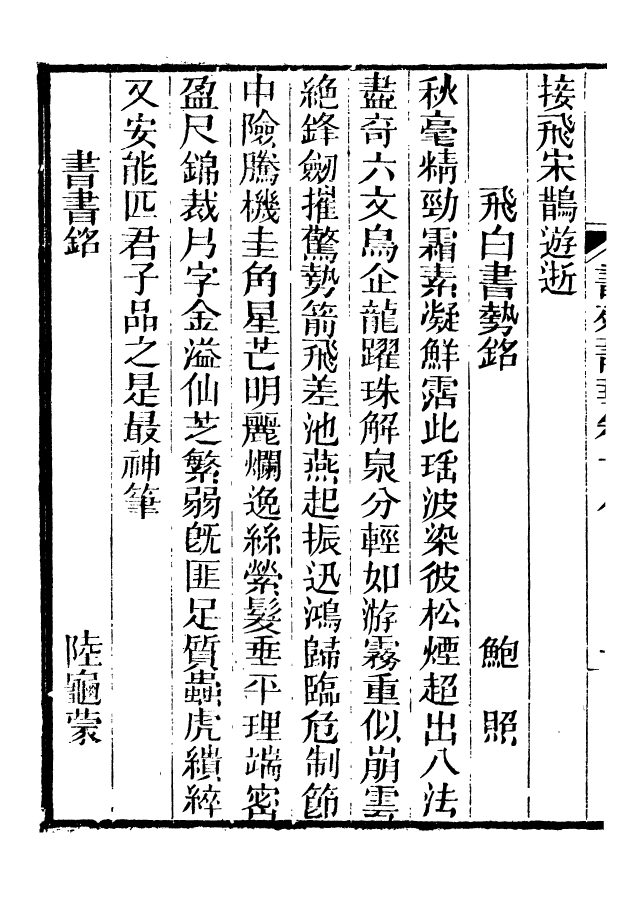 接飛宋鵲遊逝
飛白書勢銘　鮑照
秋毫精勁霜素凝鮮霑此瑤波染彼松煙超出八法
盡奇六文鳥企龍躍珠解泉分輕如游霧重似崩雲
絕鋒劒摧驚勢箭飛差池燕起振迅鴻歸臨危制節
中險騰機圭角星芒明麗爛逸絲縈髮垂平理端密
盈尺錦裁片字金溢仙芝繁弱旣匪足質蟲虎縝綷
又安能匹君子品之是最神筆
書書銘　陸龜蒙